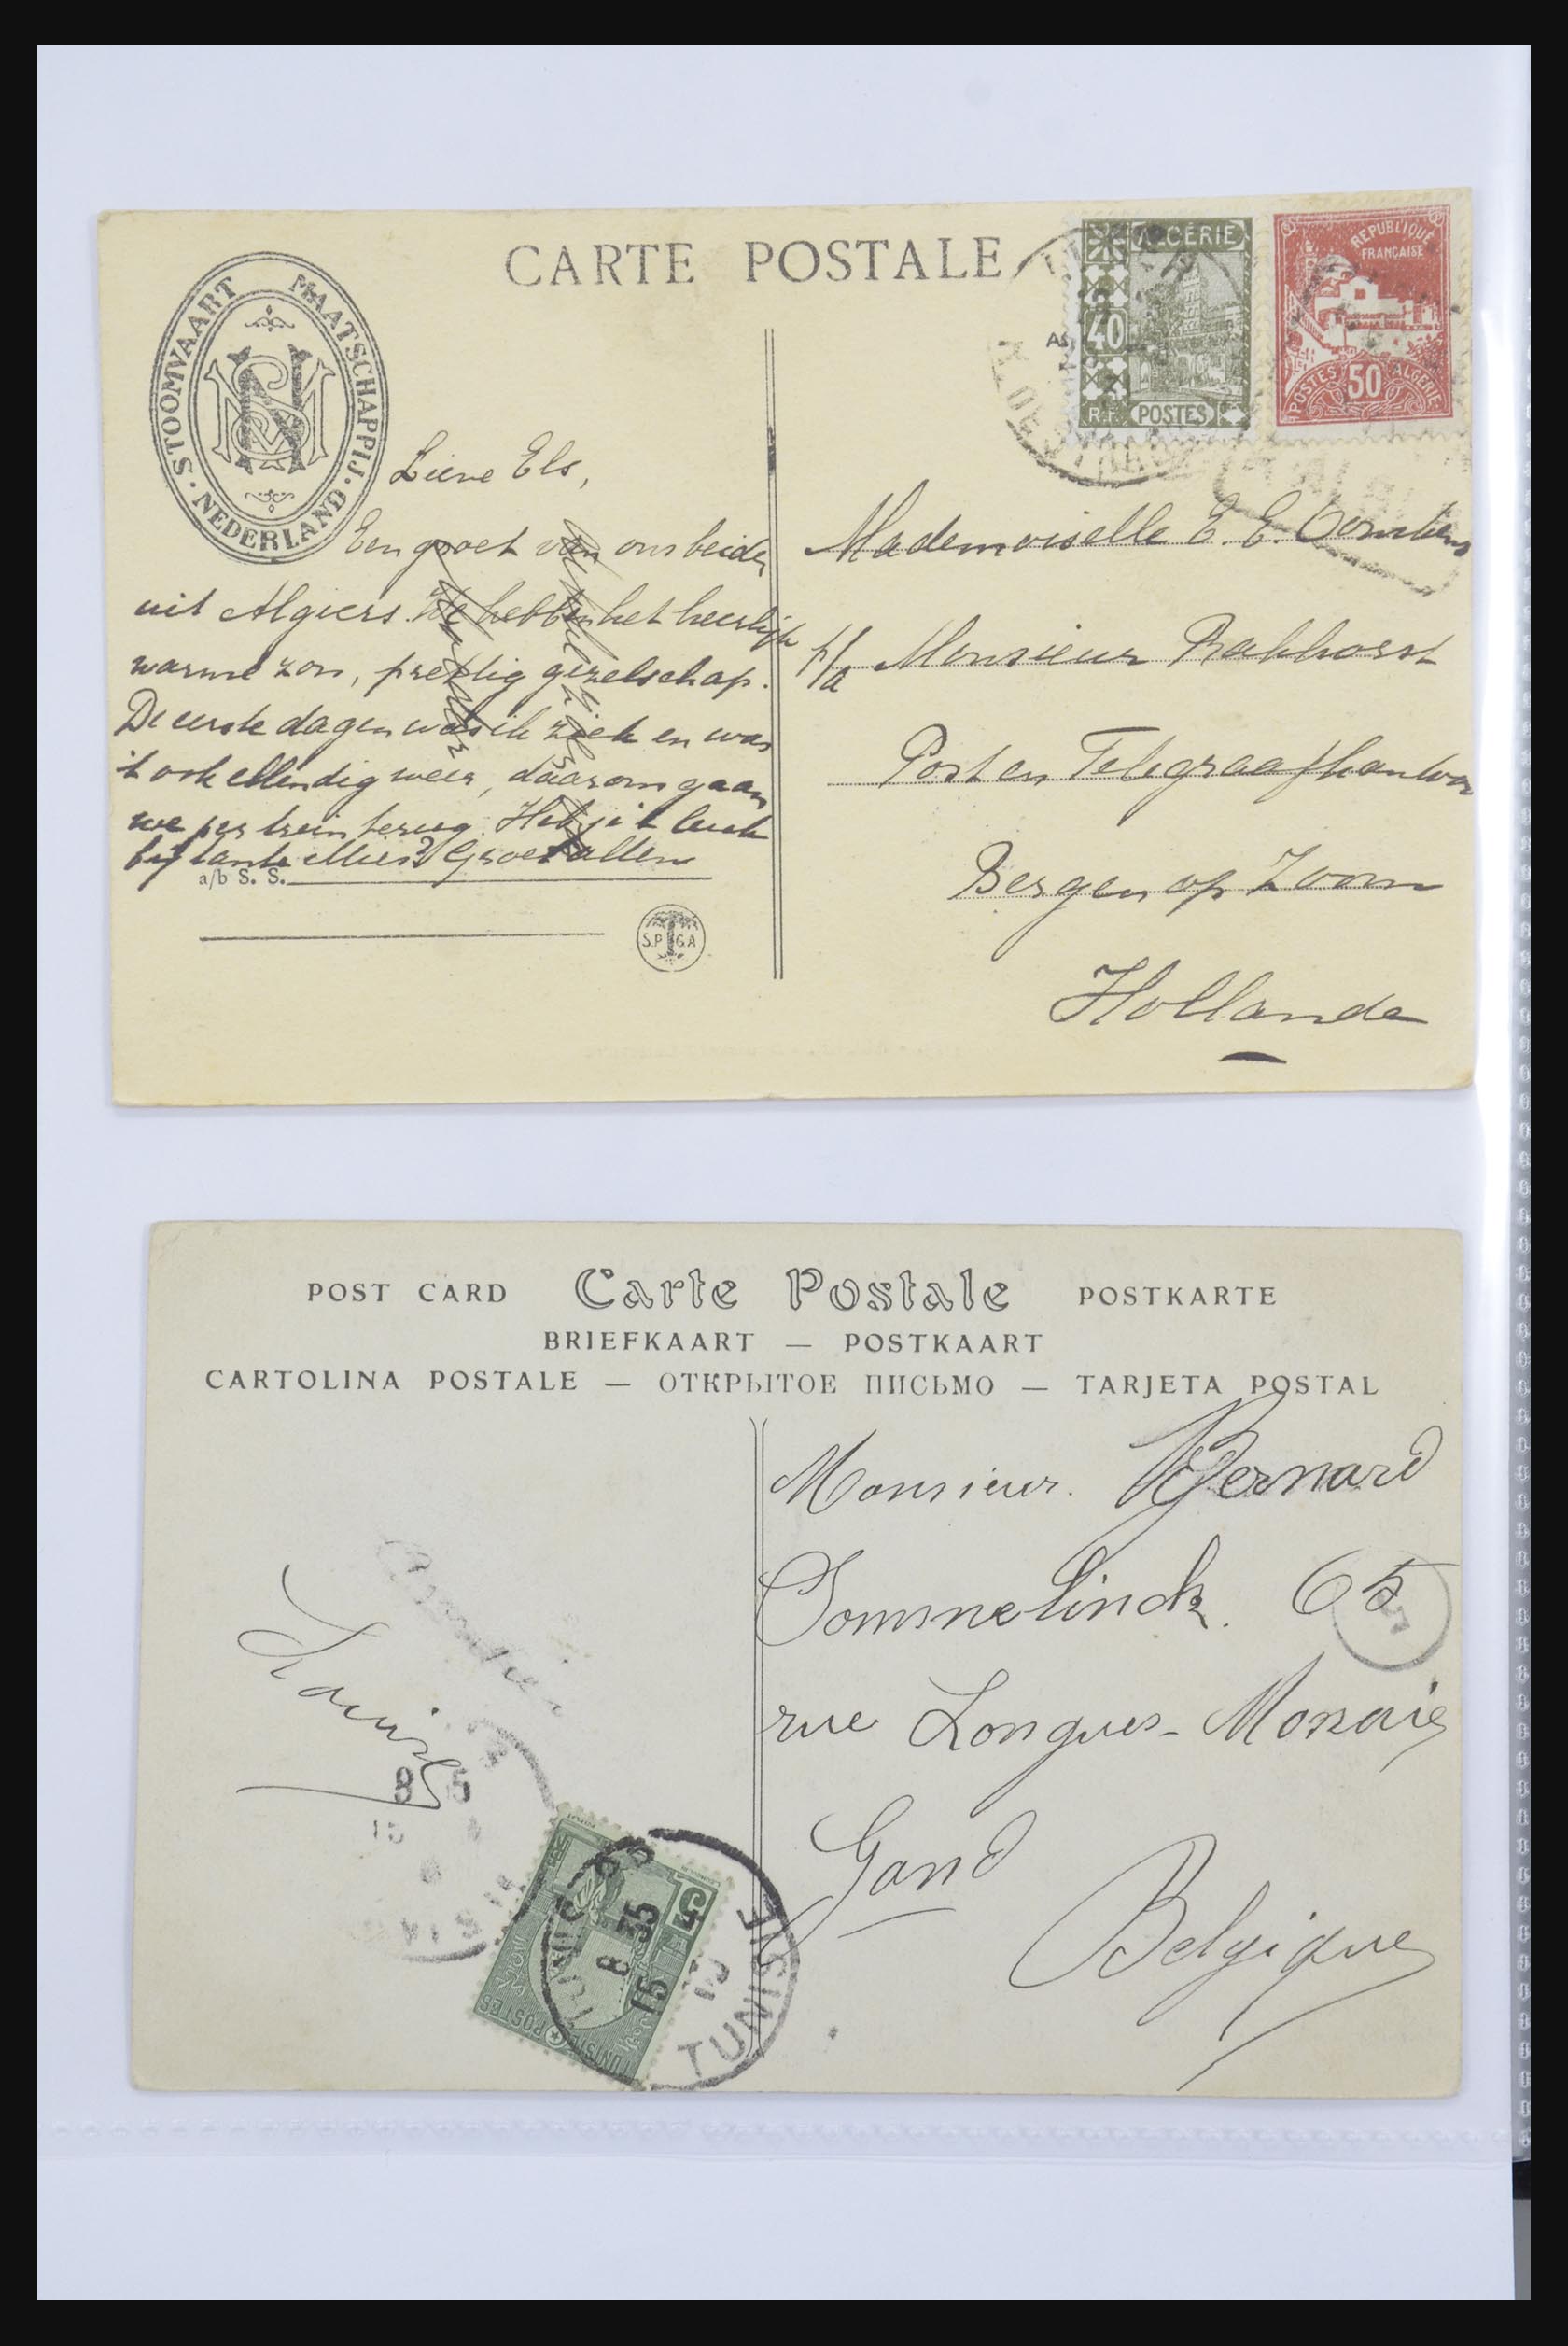 CARTE POSTALE
STOOMVAART MAATSCHAPPIJ · NEDERLAND ·
SMN
ALGÉRIE
40
R.F. POSTES
REPUBLIQUE
FRANÇAISE
50
POSTES ALGERIE
Lieve Els,
Een groet van ons beiden
uit Algiers. We hebben het heerlijk
warme zon, prettig gezelschap.
De eerste dagen was ik ziek en was
't ook ellendig weer, daarom gaan
we per trein terug. Heb je 't leuk
bij tante Mies? Groet allen
a/b S. S.
S.P.G.A
Mademoiselle E. E.
p/a Monsieur Rakhorst
Post en Telegraafkantoor
Bergen op Zoom
Hollande
POST CARD Carte Postale POSTKARTE
BRIEFKAART — POSTKAART
CARTOLINA POSTALE — ОТКРЫТОЕ ПИСЬМО — TARJETA POSTAL
Monsieur. Bernard
Commelinck. 65
rue Longues-Monaies
Gand
Belgique
Louise
8 35
15
5
TUNISIE POSTES
TUNIS
8 35
15
10
TUNISIE